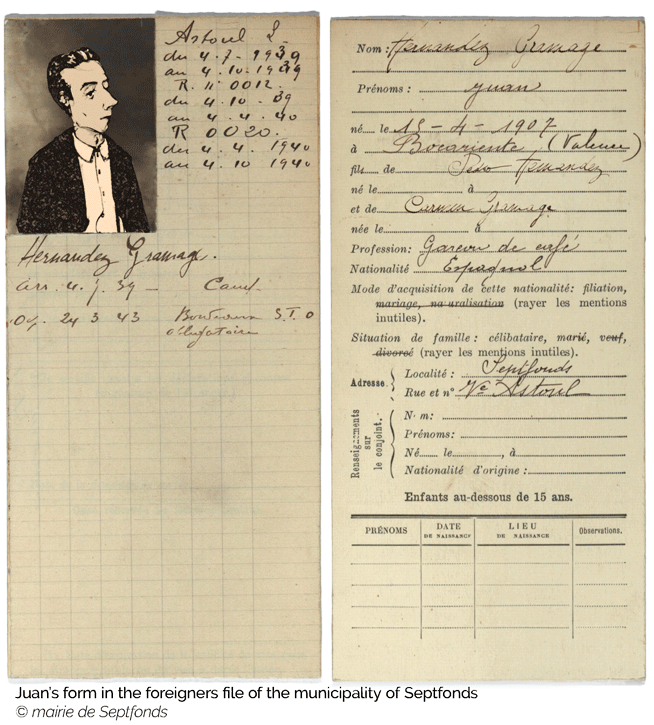 Astoul L
du 4.7-1939
au 4.10.1939
R. n° 0012.
du 4.10.39
au 4.4.40
R 0020.
du 4.4.1940
au 10.1940
Hernandez Gramage.
arr. 4. 39 - Camp.
24 3 43 S.T.O
obligatoire
Nom : Hernandez Gramage
Prénoms : Juan
né le 15-4-1907
à Bocariente, (Valence)
fils de Hernandez
né le à
et de Carmen Gramage
née le à
Profession: Garcon de café
Nationalité Espagnol
Mode d'acquisition de cette nationalité: filiation,
mariage, na uralisation (rayer les mentions
inutiles).
Situation de famille : célibataire, marié, veuf,
divorcé (rayer les mentions inutiles).
Adresse.
Localité : Septfonds
Rue et n° Ve Astoul
Renseignements
sur
le conjoint.
N m:
Prénoms:
Né le , à
Nationalité d'origine :
Enfants au-dessous de 15 ans.
PRÉNOMS DATE LIEU Observations.
DE NAISSANCE DE NAISSANCE
Juan's form in the foreigners file of the municipality of Septfonds
© mairie de Septfonds